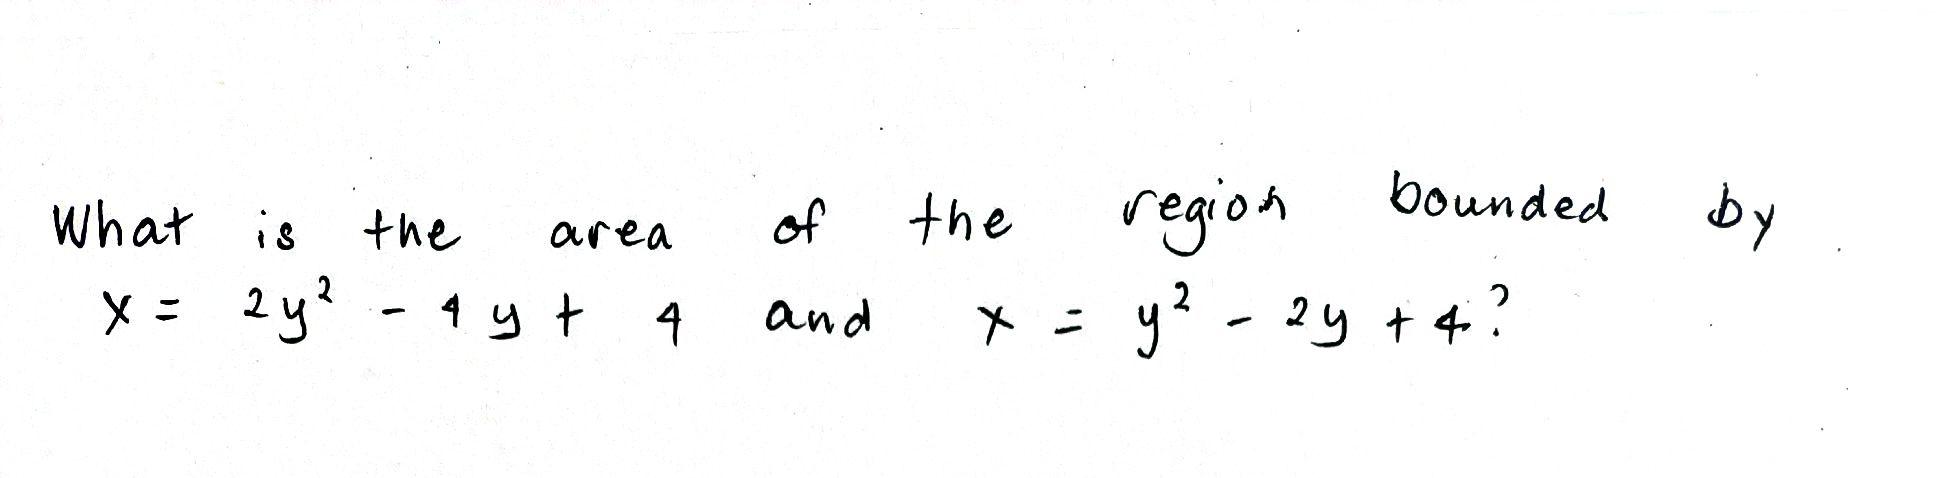 What is the area of the region bounded by
x = 2y² - 4y + 4 and x = y² - 2y + 4?